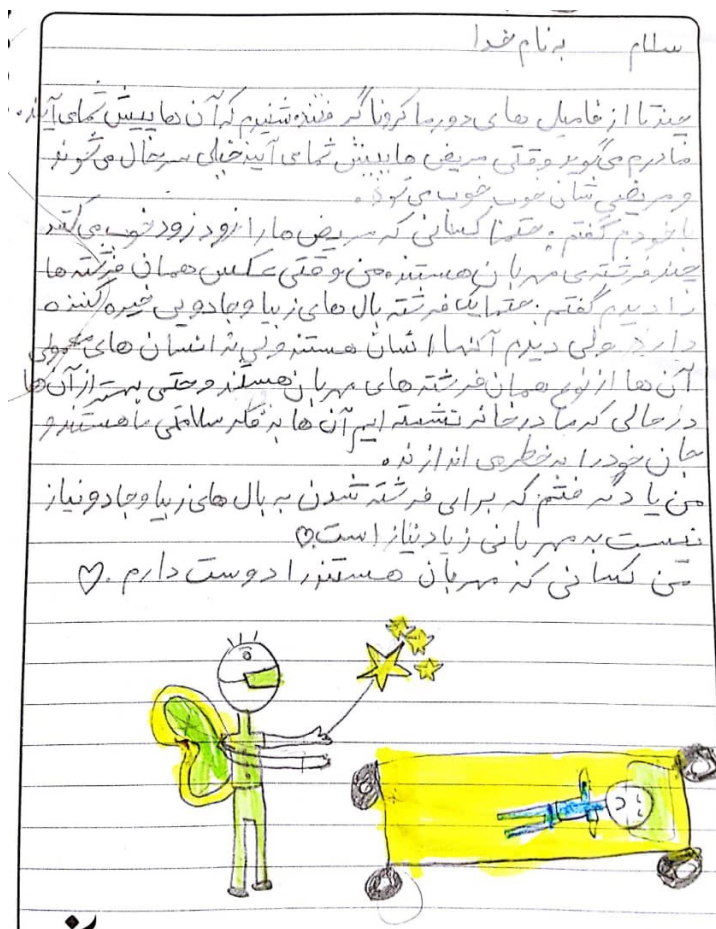 سلام به نام خدا
چندتا از فامیل های دور ما کرونا گرفتند شنیدم که آن ها پیش شما می آیند.
مادرم می گوید وقتی مریض ها پیش شما می آیند خیلی سرحال می شوند
و مریضی شان خوب خوب می شود.
با خودم گفتم: حتما کسانی که مریض ها را زود زود خوب می کنند
چند فرشته ی مهربان هستند من وقتی عکس همان فرشته ها
را دیدم گفتم: حتما یک فرشته بال های زیبا و جادویی خیره کننده
دارد ولی دیدم آنها انسان هستند ولی نه انسان های معمولی
آن ها از نوع همان فرشته های مهربان هستند و حتی بهتر از آن ها
در حالی که ما در خانه نشسته ایم آن ها به فکر سلامتی ما هستند و
جان خود را به خطر می اندازند.
من یاد گرفتم که برای فرشته شدن به بال های زیبا و جادو نیاز
نیست به مهربانی زیاد نیاز است♡
من کسانی که مهربان هستند را دوست دارم.♡